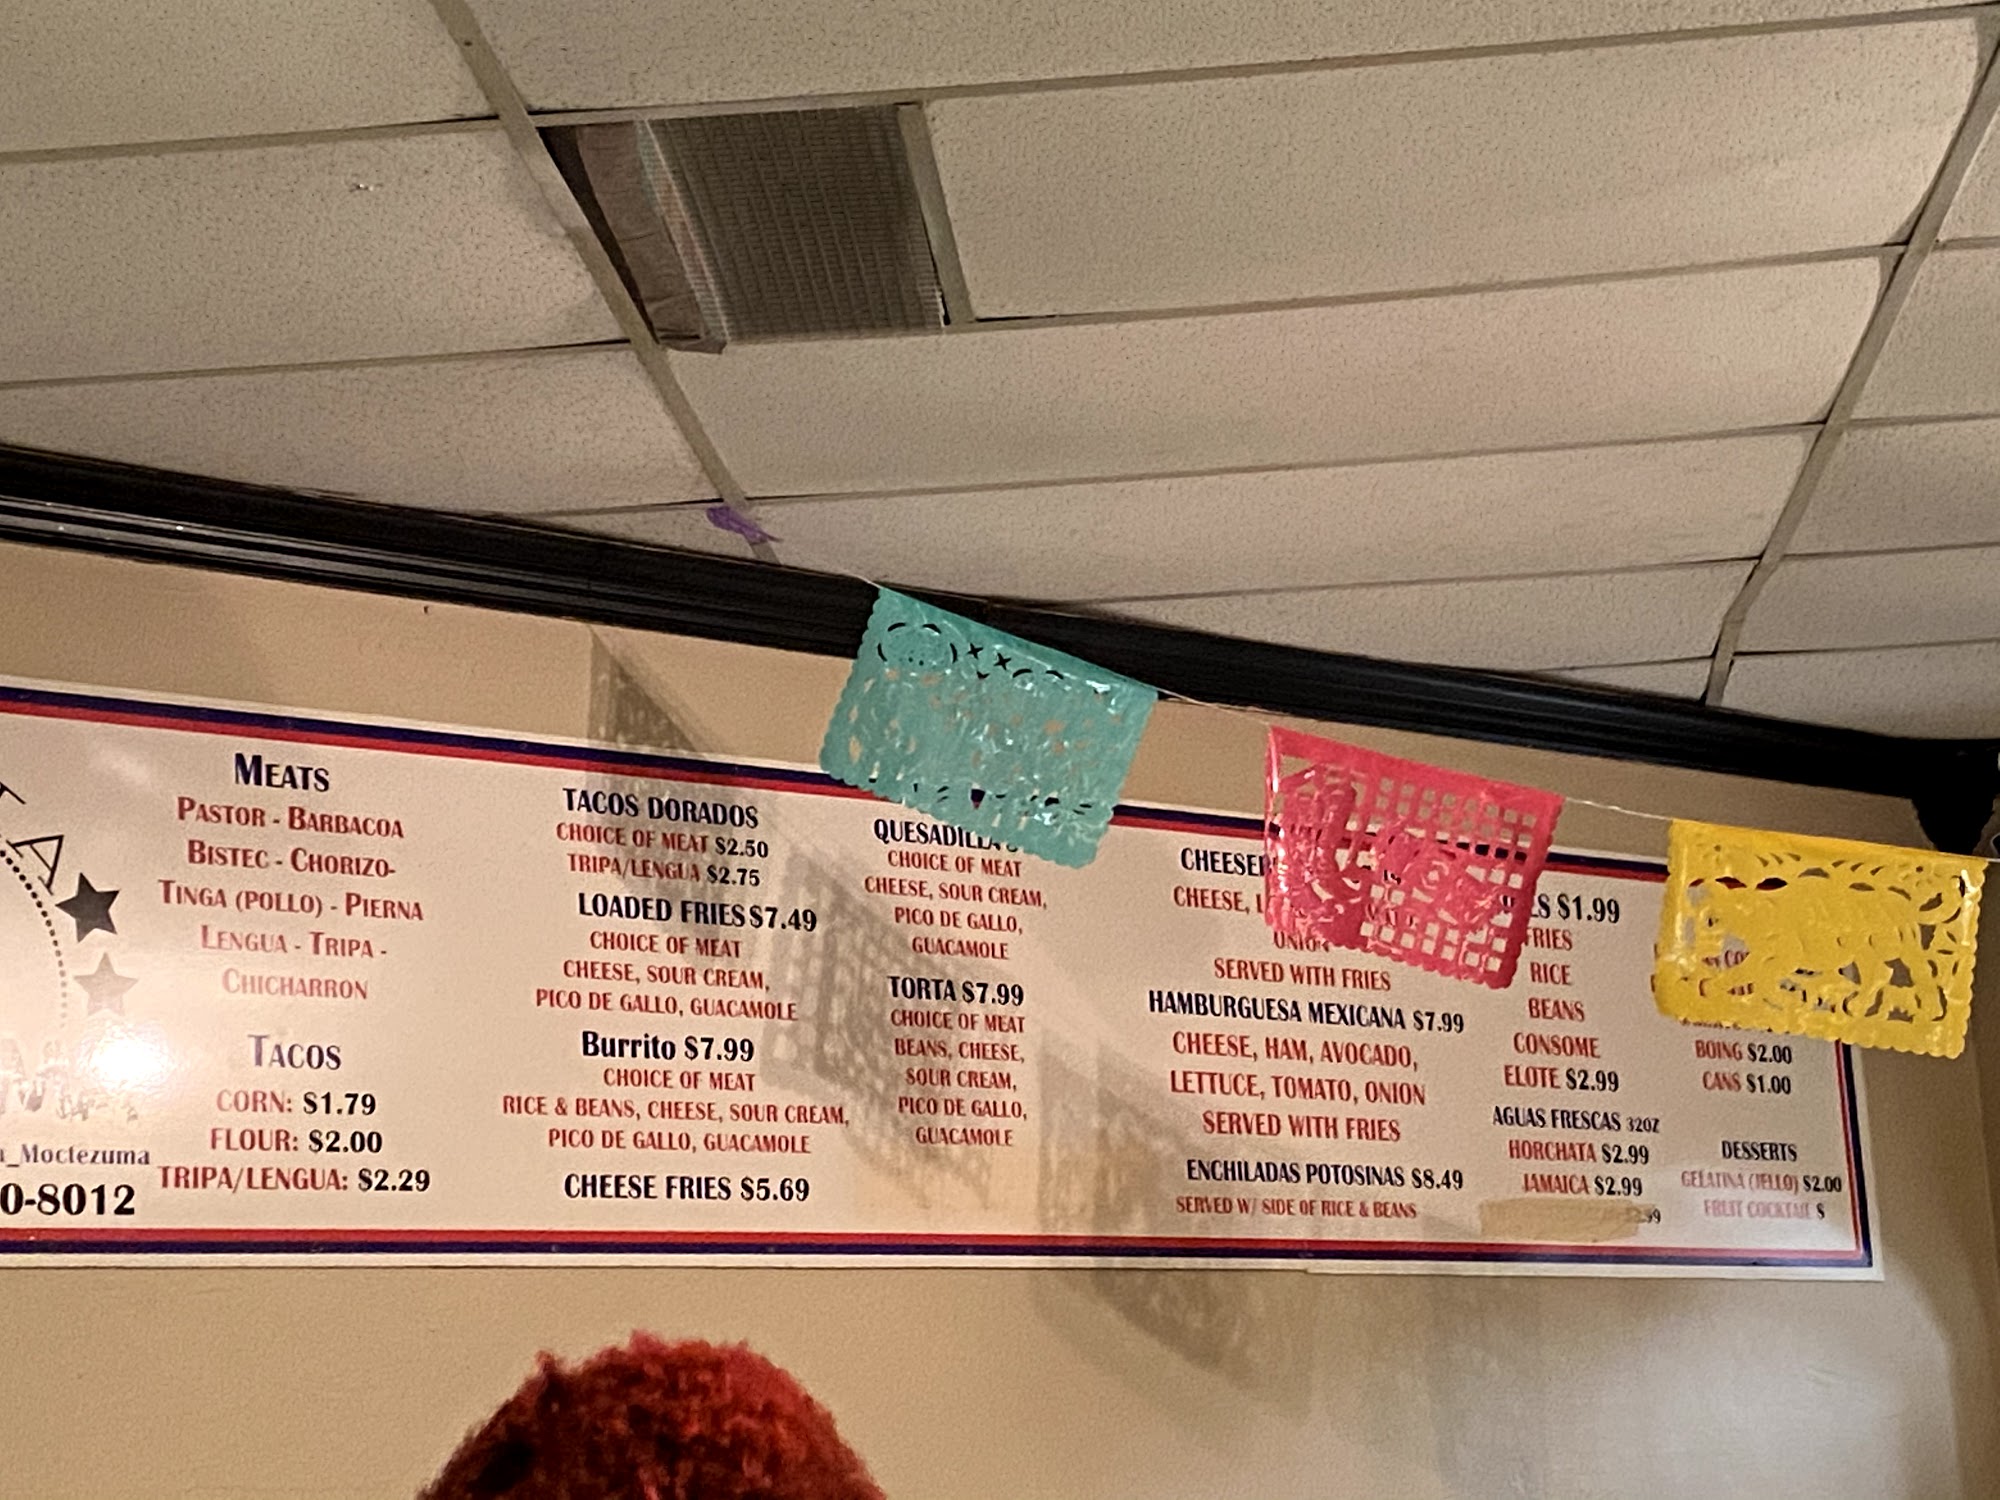 TA
a_Moctezuma
0-8012
MEATS
PASTOR - BARBACOA
BISTEC - CHORIZO-
TINGA (POLLO) - PIERNA
LENGUA - TRIPA -
CHICHARRON
TACOS
CORN: $1.79
FLOUR: $2.00
TRIPA/LENGUA: $2.29
TACOS DORADOS
CHOICE OF MEAT $2.50
TRIPA/LENGUA $2.75
LOADED FRIES $7.49
CHOICE OF MEAT
CHEESE, SOUR CREAM,
PICO DE GALLO, GUACAMOLE
Burrito $7.99
CHOICE OF MEAT
RICE & BEANS, CHEESE, SOUR CREAM,
PICO DE GALLO, GUACAMOLE
CHEESE FRIES $5.69
QUESADILLA
CHOICE OF MEAT
CHEESE, SOUR CREAM,
PICO DE GALLO,
GUACAMOLE
TORTA $7.99
CHOICE OF MEAT
BEANS, CHEESE,
SOUR CREAM,
PICO DE GALLO,
GUACAMOLE
CHEESE
CHEESE, L
ONION
SERVED WITH FRIES
HAMBURGUESA MEXICANA $7.99
CHEESE, HAM, AVOCADO,
LETTUCE, TOMATO, ONION
SERVED WITH FRIES
ENCHILADAS POTOSINAS $8.49
SERVED W/ SIDE OF RICE & BEANS
ES $1.99
FRIES
RICE
BEANS
CONSOME
ELOTE $2.99
AGUAS FRESCAS 32OZ
HORCHATA $2.99
JAMAICA $2.99
.99
BOING $2.00
CANS $1.00
DESSERTS
GELATINA (JELLO) $2.00
FRUIT COCKTAIL $